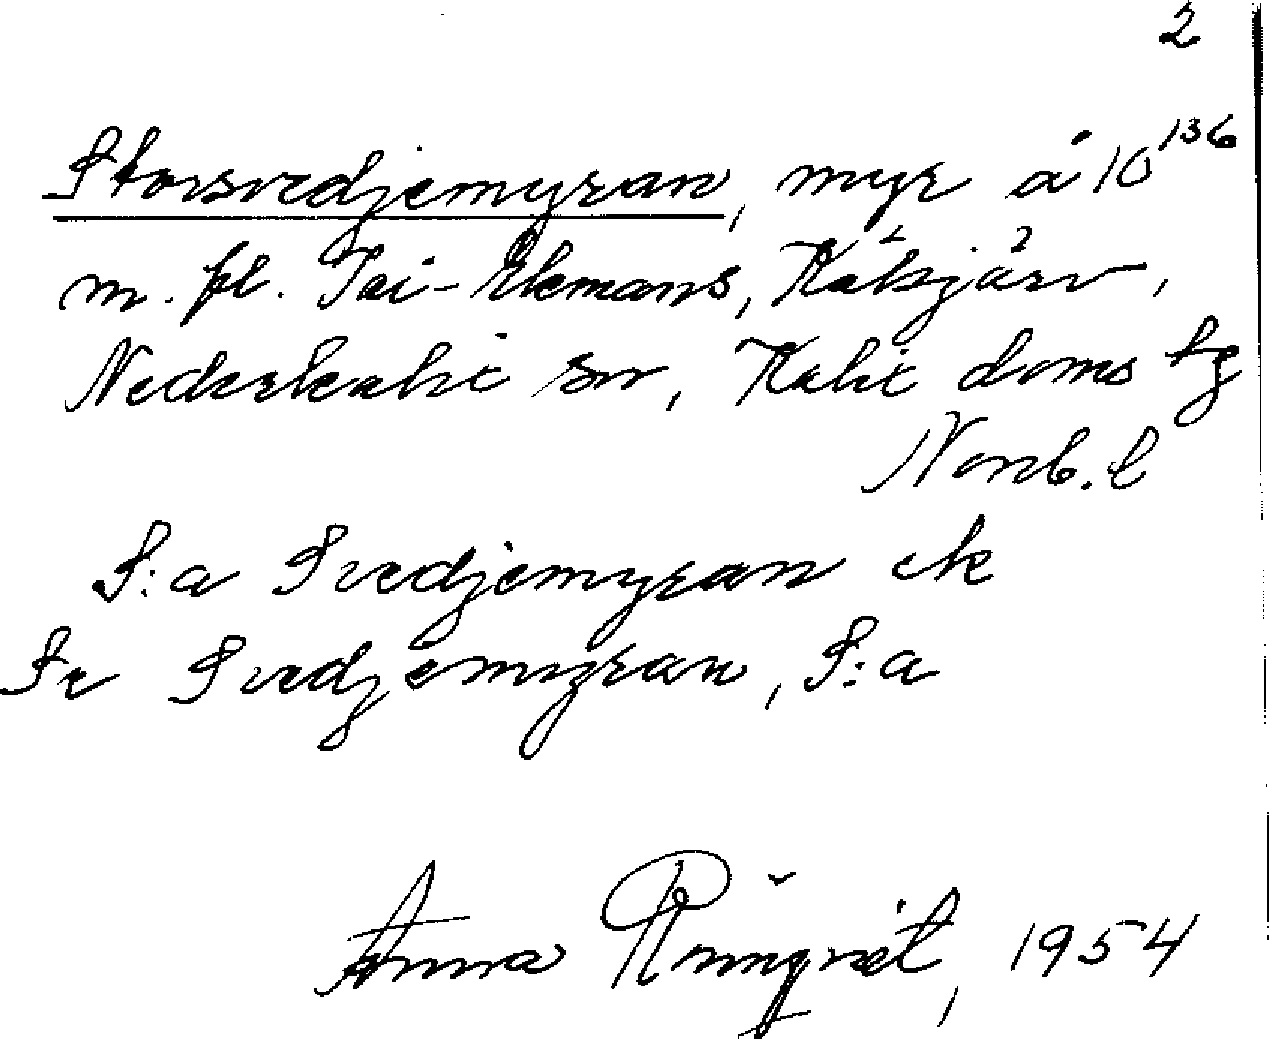 2
Storsvedjemyran, myr å 10 136
m. fl. Pai-Ekmans, Räktjärv,
Nederkalix sn, Kalix doms tg
Norrb. l
S:a Svedjemyran ek
Se Svedjemyran, S:a
Anna Rönnqvist, 1954